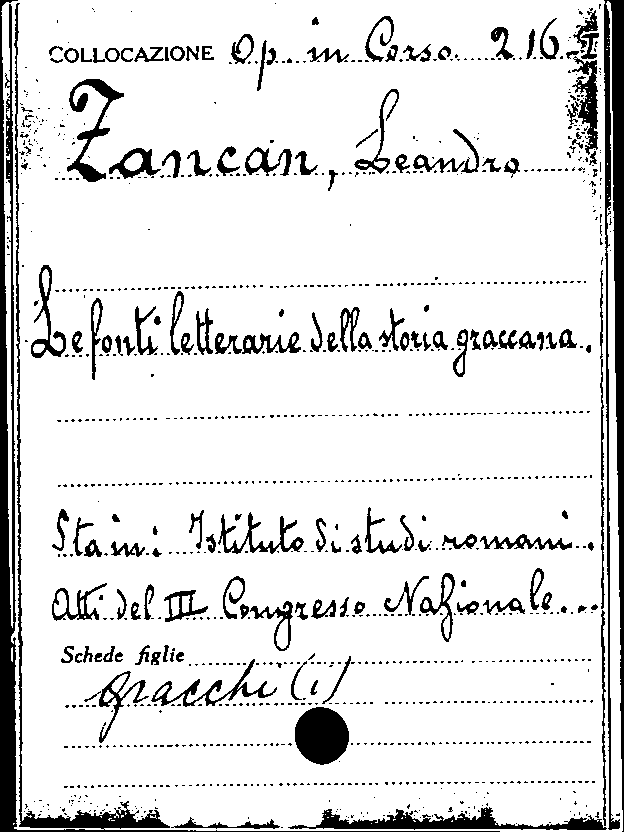 COLLOCAZIONE Op. in Corso. 216-I
Zancan, Leandro
Le fonti letterarie della storia graccana.
Sta in: Istituto di studi romani.
Atti del III Congresso Nazionale...
Schede figlie
Gracchi (1)